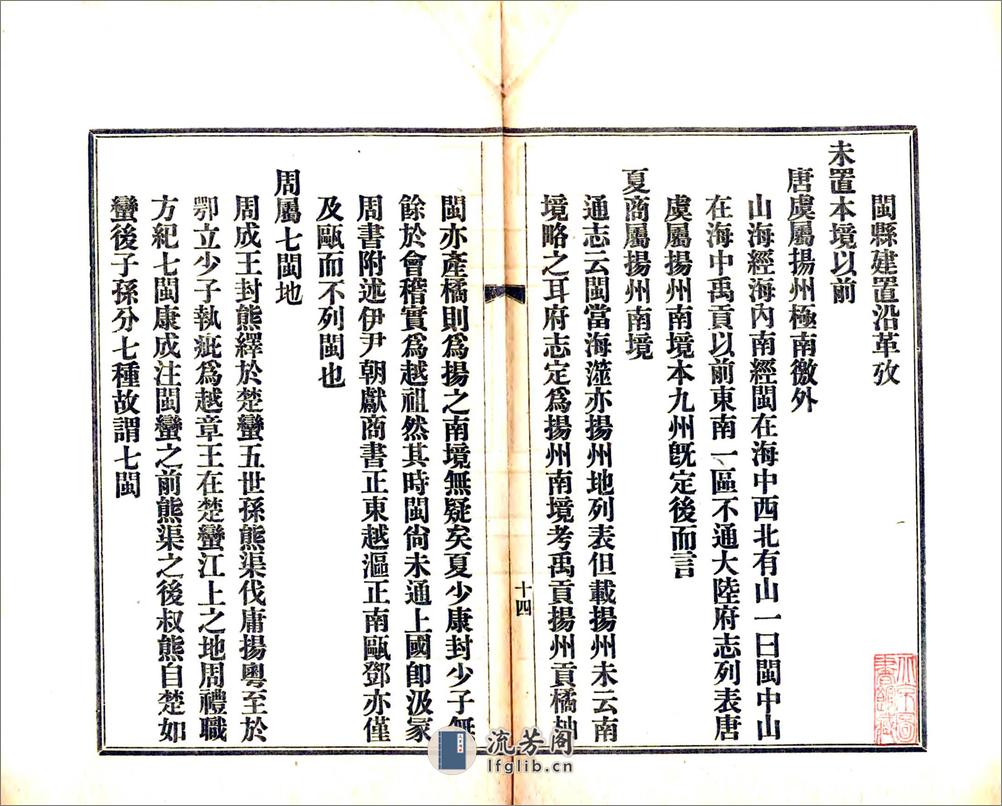 閩縣建置沿革攷
未置本境以前
唐虞屬揚州極南徼外
山海經海內南經閩在海中西北有山一曰閩中山
在海中禹貢以前東南一區不通大陸府志列表唐
虞屬揚州南境本九州旣定後而言
夏商屬揚州南境
通志云閩當海澨亦揚州地列表但載揚州未云南
境略之耳府志定爲揚州南境考禹貢揚州貢橘柚
十四
閩亦產橘則爲揚之南境無疑矣夏少康封少子無
餘於會稽實爲越祖然其時閩尙未通上國卽汲冢
周書附述伊尹朝獻商書正東越漚正南甌鄧亦僅
及甌而不列閩也
周屬七閩地
周成王封熊繹於楚蠻五世孫熊渠伐庸揚粵至於
鄂立少子執疵爲越章王在楚蠻江上之地周禮職
方紀七閩康成注閩蠻之前熊渠之後叔熊自楚如
蠻後子孫分七種故謂七閩
流芳阁
lfglib.cn